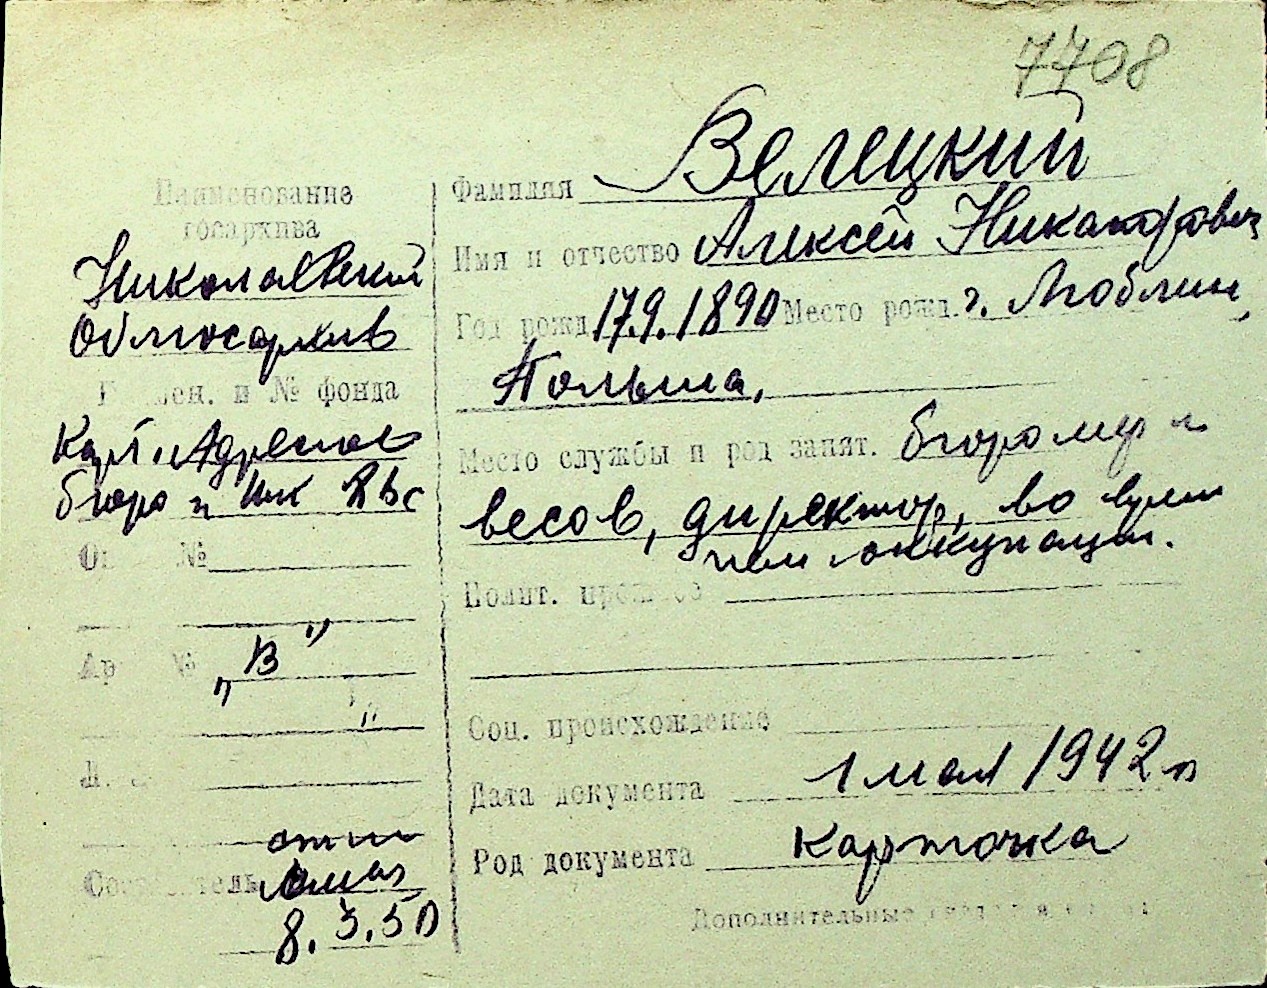 7708
Наименование
госархива
Николаевский
Облгосархив
№ фонда
Карт. Адресного
бюро и
№
№ "В"
Составитель
8.3.50
Фамилия Велецкий
Имя и отчество Алексей Никанорович
Год рожд. 17.9.1890 Место рожд. г. Люблин,
Польша,
Место службы и род занят. бюро мер и
весов, директор, во время
нем. оккупации.
Полит. прошлое
Соц. происхождение
Дата документа 1 мая 1942 г.
Род документа Карточка
Дополнительные сведения